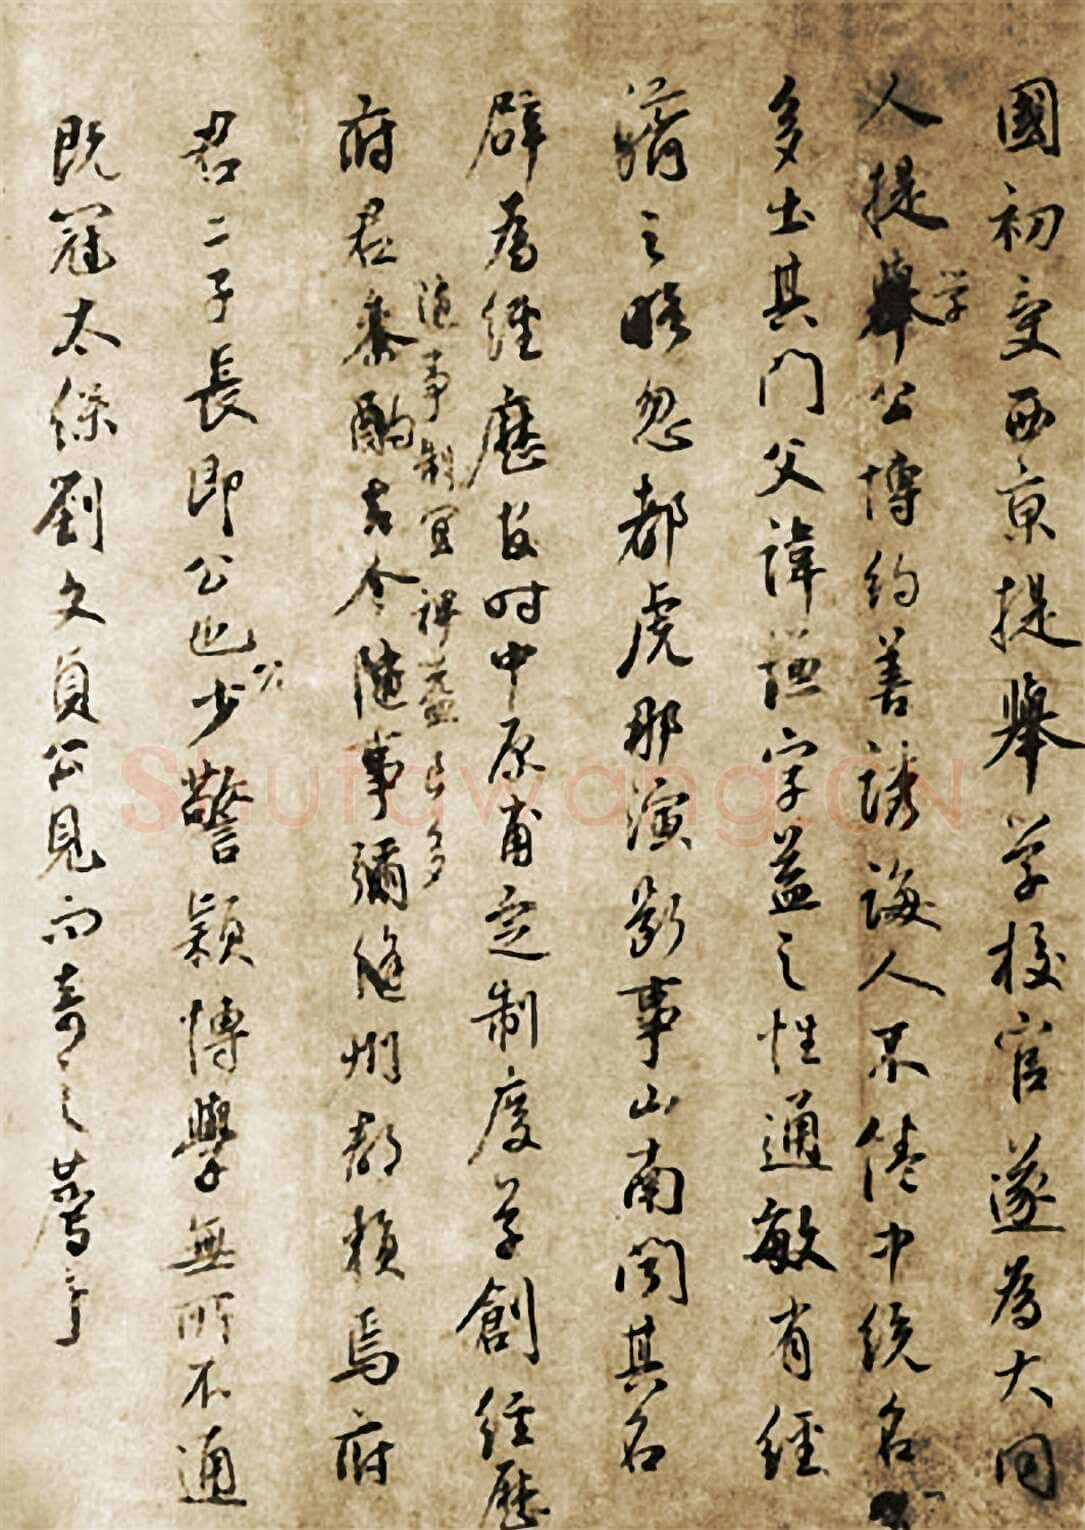 國初受西京提舉学校官遂為大同
人提舉学公博約善誘誨人不倦中統名
多士出其門父諱謚字益之性通敏有經
濟之略忽都虎那演斷事山南聞其名
辟為經歷故时中原甫定制度草創經歷
府君斟酌古今隨事彌縫州郡賴焉府
隨事制宜裨益良多
君二子長即公也公少警穎博學無所不通
既冠太保劉文貞公見而奇之薦于
Shufawang.CN